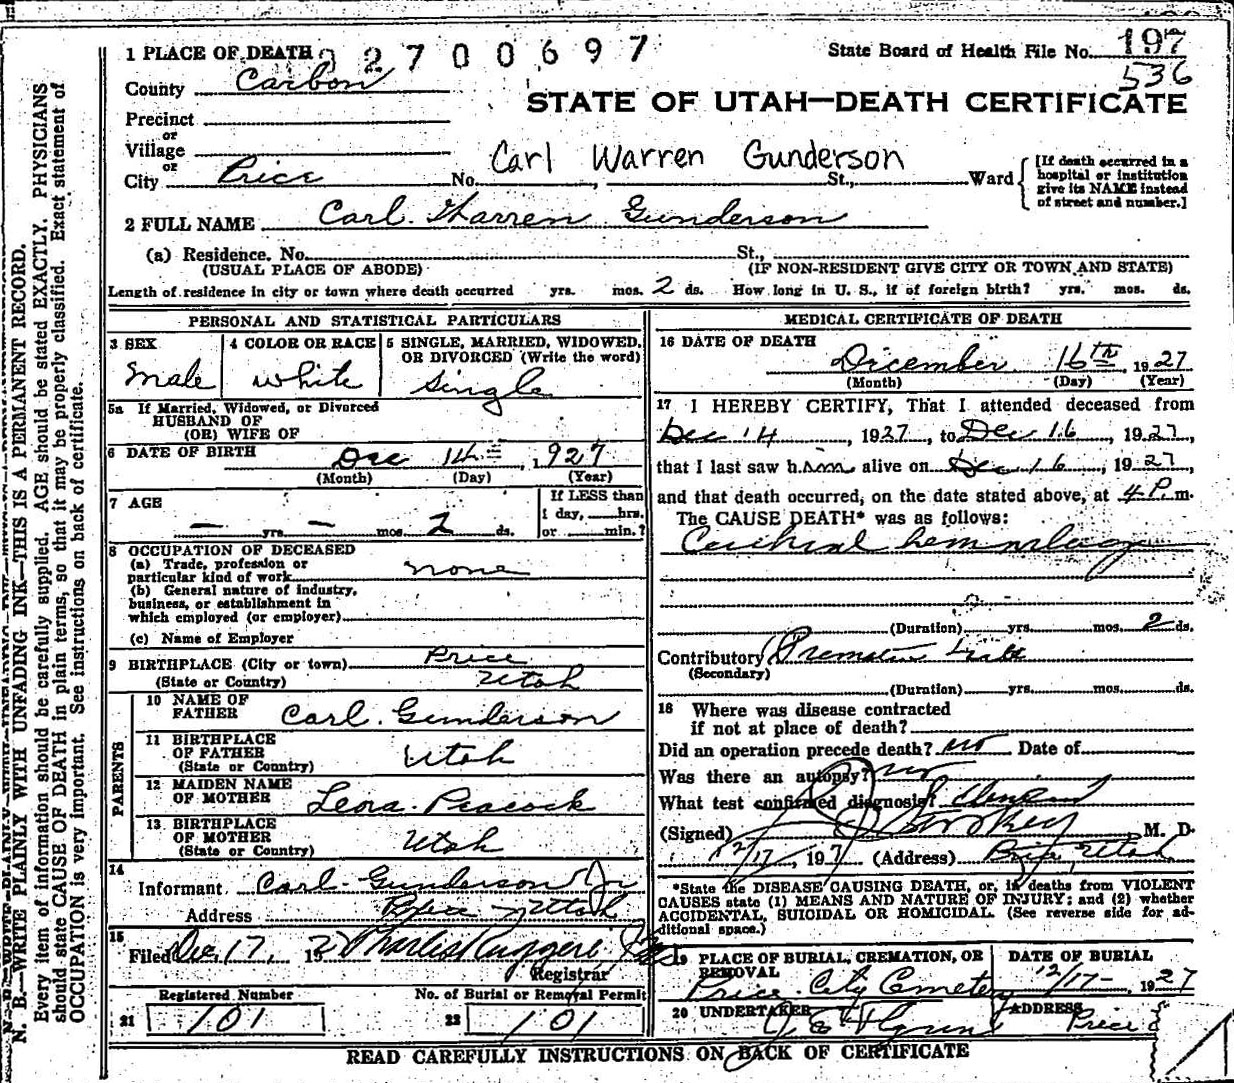 1 PLACE OF DEATH 2700697
State Board of Health File No. 197
536
County Carbon
STATE OF UTAH—DEATH CERTIFICATE
Precinct
or
Village
or
City Price No. St., Ward
Carl Warren Gunderson
[If death occurred in a hospital or institution give its NAME instead of street and number.]
2 FULL NAME Carl Warren Gunderson
(a) Residence. No. St.,
(USUAL PLACE OF ABODE) (IF NON-RESIDENT GIVE CITY OR TOWN AND STATE)
Length of residence in city or town where death occurred yrs. mos. 2 ds. How long in U. S., if of foreign birth? yrs. mos. ds.
PERSONAL AND STATISTICAL PARTICULARS
3 SEX
male
4 COLOR OR RACE
white
5 SINGLE, MARRIED, WIDOWED, OR DIVORCED (Write the word)
single
5a If Married, Widowed, or Divorced
HUSBAND OF
(OR) WIFE OF
6 DATE OF BIRTH Dec 14th, 1927
(Month) (Day) (Year)
7 AGE
– yrs. – mos. 2 ds.
If LESS than
1 day, hrs.
or min.?
8 OCCUPATION OF DECEASED
(a) Trade, profession or
particular kind of work none
(b) General nature of industry,
business, or establishment in
which employed (or employer)
(c) Name of Employer
9 BIRTHPLACE (City or town) Price
(State or Country) Utah
PARENTS
10 NAME OF
FATHER Carl Gunderson
11 BIRTHPLACE
OF FATHER Utah
(State or Country)
12 MAIDEN NAME
OF MOTHER Leora Peacock
13 BIRTHPLACE
OF MOTHER Utah
(State or Country)
14
Informant Carl Gunderson Jr
Address Price Utah
15
Filed Dec. 17, 192
Registrar
Registered Number
21 101
No. of Burial or Removal Permit
22 101
MEDICAL CERTIFICATE OF DEATH
16 DATE OF DEATH
December 16th, 1927
(Month) (Day) (Year)
17 I HEREBY CERTIFY, That I attended deceased from
Dec 14, 1927, to Dec 16, 1927,
that I last saw him alive on Dec 16, 1927,
and that death occurred, on the date stated above, at 4 P. m.
The CAUSE DEATH* was as follows:
Cerebral hemorrhage
(Duration) yrs. mos. 2 ds.
Contributory Premature birth
(Secondary)
(Duration) yrs. mos. ds.
18 Where was disease contracted
if not at place of death?
Did an operation precede death? no Date of
Was there an autopsy? no
What test confirmed diagnosis? Clinical
(Signed) M. D.
12/17, 1927 (Address) Price, Utah
*State the DISEASE CAUSING DEATH, or, in deaths from VIOLENT
CAUSES state (1) MEANS AND NATURE OF INJURY; and (2) whether
ACCIDENTAL, SUICIDAL OR HOMICIDAL. (See reverse side for ad-
ditional space.)
19 PLACE OF BURIAL, CREMATION, OR
REMOVAL
Price City Cemetery
DATE OF BURIAL
12/17 1927
20 UNDERTAKER
ADDRESS Price
READ CAREFULLY INSTRUCTIONS ON BACK OF CERTIFICATE
N. B.—WRITE PLAINLY WITH UNFADING INK—THIS IS A PERMANENT RECORD.
Every item of information should be carefully supplied. AGE should be stated EXACTLY. PHYSICIANS
should state CAUSE OF DEATH in plain terms, so that it may be properly classified. Exact statement of
OCCUPATION is very important. See instructions on back of certificate.